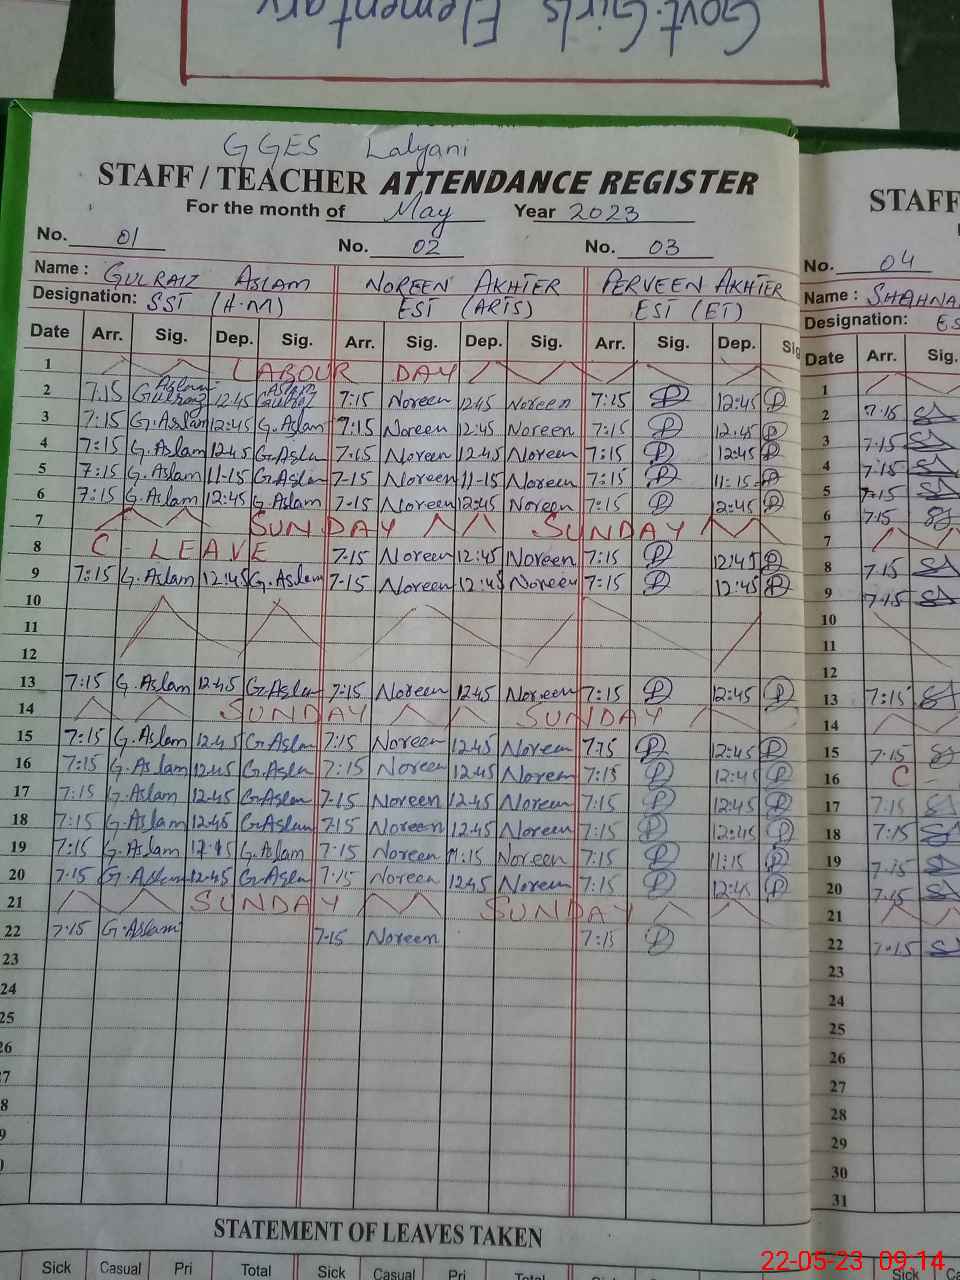 Govt. Girls Elementary
GGES Lalyani
STAFF / TEACHER ATTENDANCE REGISTER
For the month of May Year 2023
No. 01 No. 02 No. 03
Name : GULRAIZ ASLAM NOREEN AKHTER PERVEEN AKHTER
Designation: SST (H.M) EST (ARTS) EST (ET)
Date Arr. Sig. Dep. Sig. Arr. Sig. Dep. Sig. Arr. Sig. Dep. Sig
1 LABOUR DAY
2 7.15 Aslam Gulraiz 12.45 Aslam Gulraiz 7:15 Noreen 12.45 Noreen 7:15 P 12:45 P
3 7:15 G.Aslam 12:45 G.Aslam 7:15 Noreen 12:45 Noreen 7:15 P 12.45 P
4 7:15 G.Aslam 12.45 G.Aslam 7.15 Noreen 12.45 Noreen 7:15 P 12:45 P
5 7:15 G.Aslam 11-15 G.Aslam 7-15 Noreen 11-15 Noreen 7:15 P 11:15 P
6 7:15 G.Aslam 12:45 G.Aslam 7-15 Noreen 12:45 Noreen 7:15 P 12:45 P
7 SUNDAY SUNDAY
8 C - LEAVE 7-15 Noreen 12:45 Noreen 7:15 P 12:45 P
9 7:15 G.Aslam 12:45 G.Aslam 7-15 Noreen 12:45 Noreen 7:15 P 12:45 P
10
11
12
13 7:15 G.Aslam 12.45 G.Aslam 7:15 Noreen 12.45 Noreen 7:15 P 12:45 P
14 SUNDAY SUNDAY
15 7:15 G.Aslam 12.45 G.Aslam 7:15 Noreen 12.45 Noreen 7:15 P 12:45 P
16 7:15 G.Aslam 12.45 G.Aslam 7:15 Noreen 12.45 Noreen 7:15 P 12:45 P
17 7:15 G.Aslam 12.45 G.Aslam 7-15 Noreen 12.45 Noreen 7:15 P 12:45 P
18 7:15 G.Aslam 12.45 G.Aslam 7:15 Noreen 12.45 Noreen 7:15 P 12:45 P
19 7:15 G.Aslam G.Aslam 7-15 Noreen 11:15 Noreen 7:15 P 11:15 P
20 7.15 G.Aslam 12.45 G.Aslam 7.15 Noreen 12.45 Noreen 7:15 P 12:45 P
21 SUNDAY SUNDAY
22 7.15 G.Aslam 7.15 Noreen 7:15 P
23
24
25
26
STATEMENT OF LEAVES TAKEN
Sick Casual Pri Total Sick Casual Pri Total
STAFF
No. 04
Name : SHAHNA
Designation: ES
Date Arr. Sig.
1
2 7.15
3 7.15
4 7.15
5 7.15
6 7.15
7
8 7.15
9 7.15
10
11
12
13 7:15
14
15 7.15
16 C -
17 7.15
18 7:15
19 7.15
20 7.15
21
22 7.15
23
24
25
26
27
28
29
30
31
Sick Cas
22-05-23 09:14